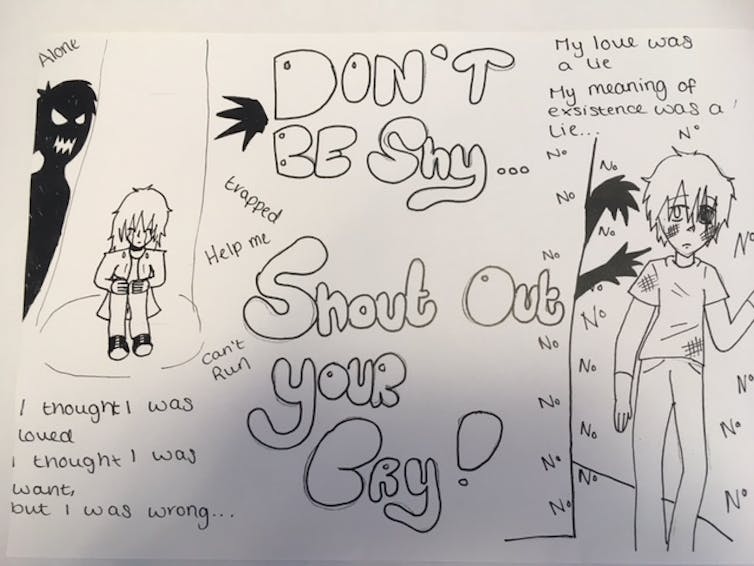 Alone
trapped
Help me
can't
Run
I thought I was
loved
I thought I was
want,
but I was wrong...
DON'T
BE Shy...
Shout Out
YOUR
CRY!
My love was
a lie
My meaning of
exsistence was a
lie...
No
No
No
No
No
No
No
No
No
No
No
No
No
No
No
No
No
No
No